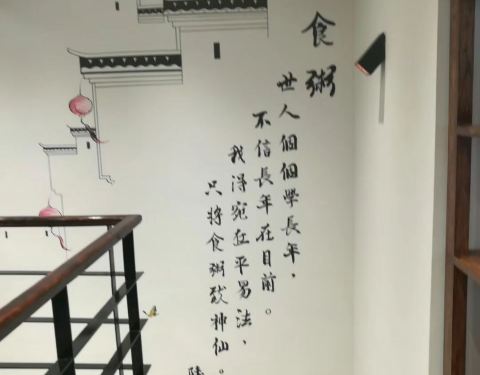 食粥
世人個個學長年，
不信長年在目前。
我得宛丘平易法，
只將食粥致神仙。
陸